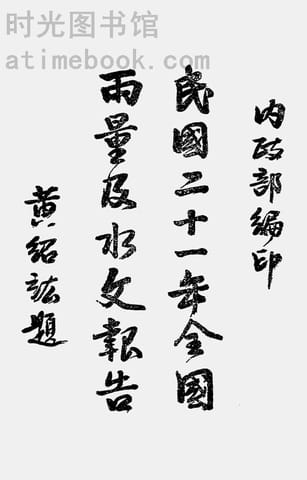 时光图书馆
atimebook.com
内政部編印
民國二十一年全國
雨量及水文報告
黄紹竑題